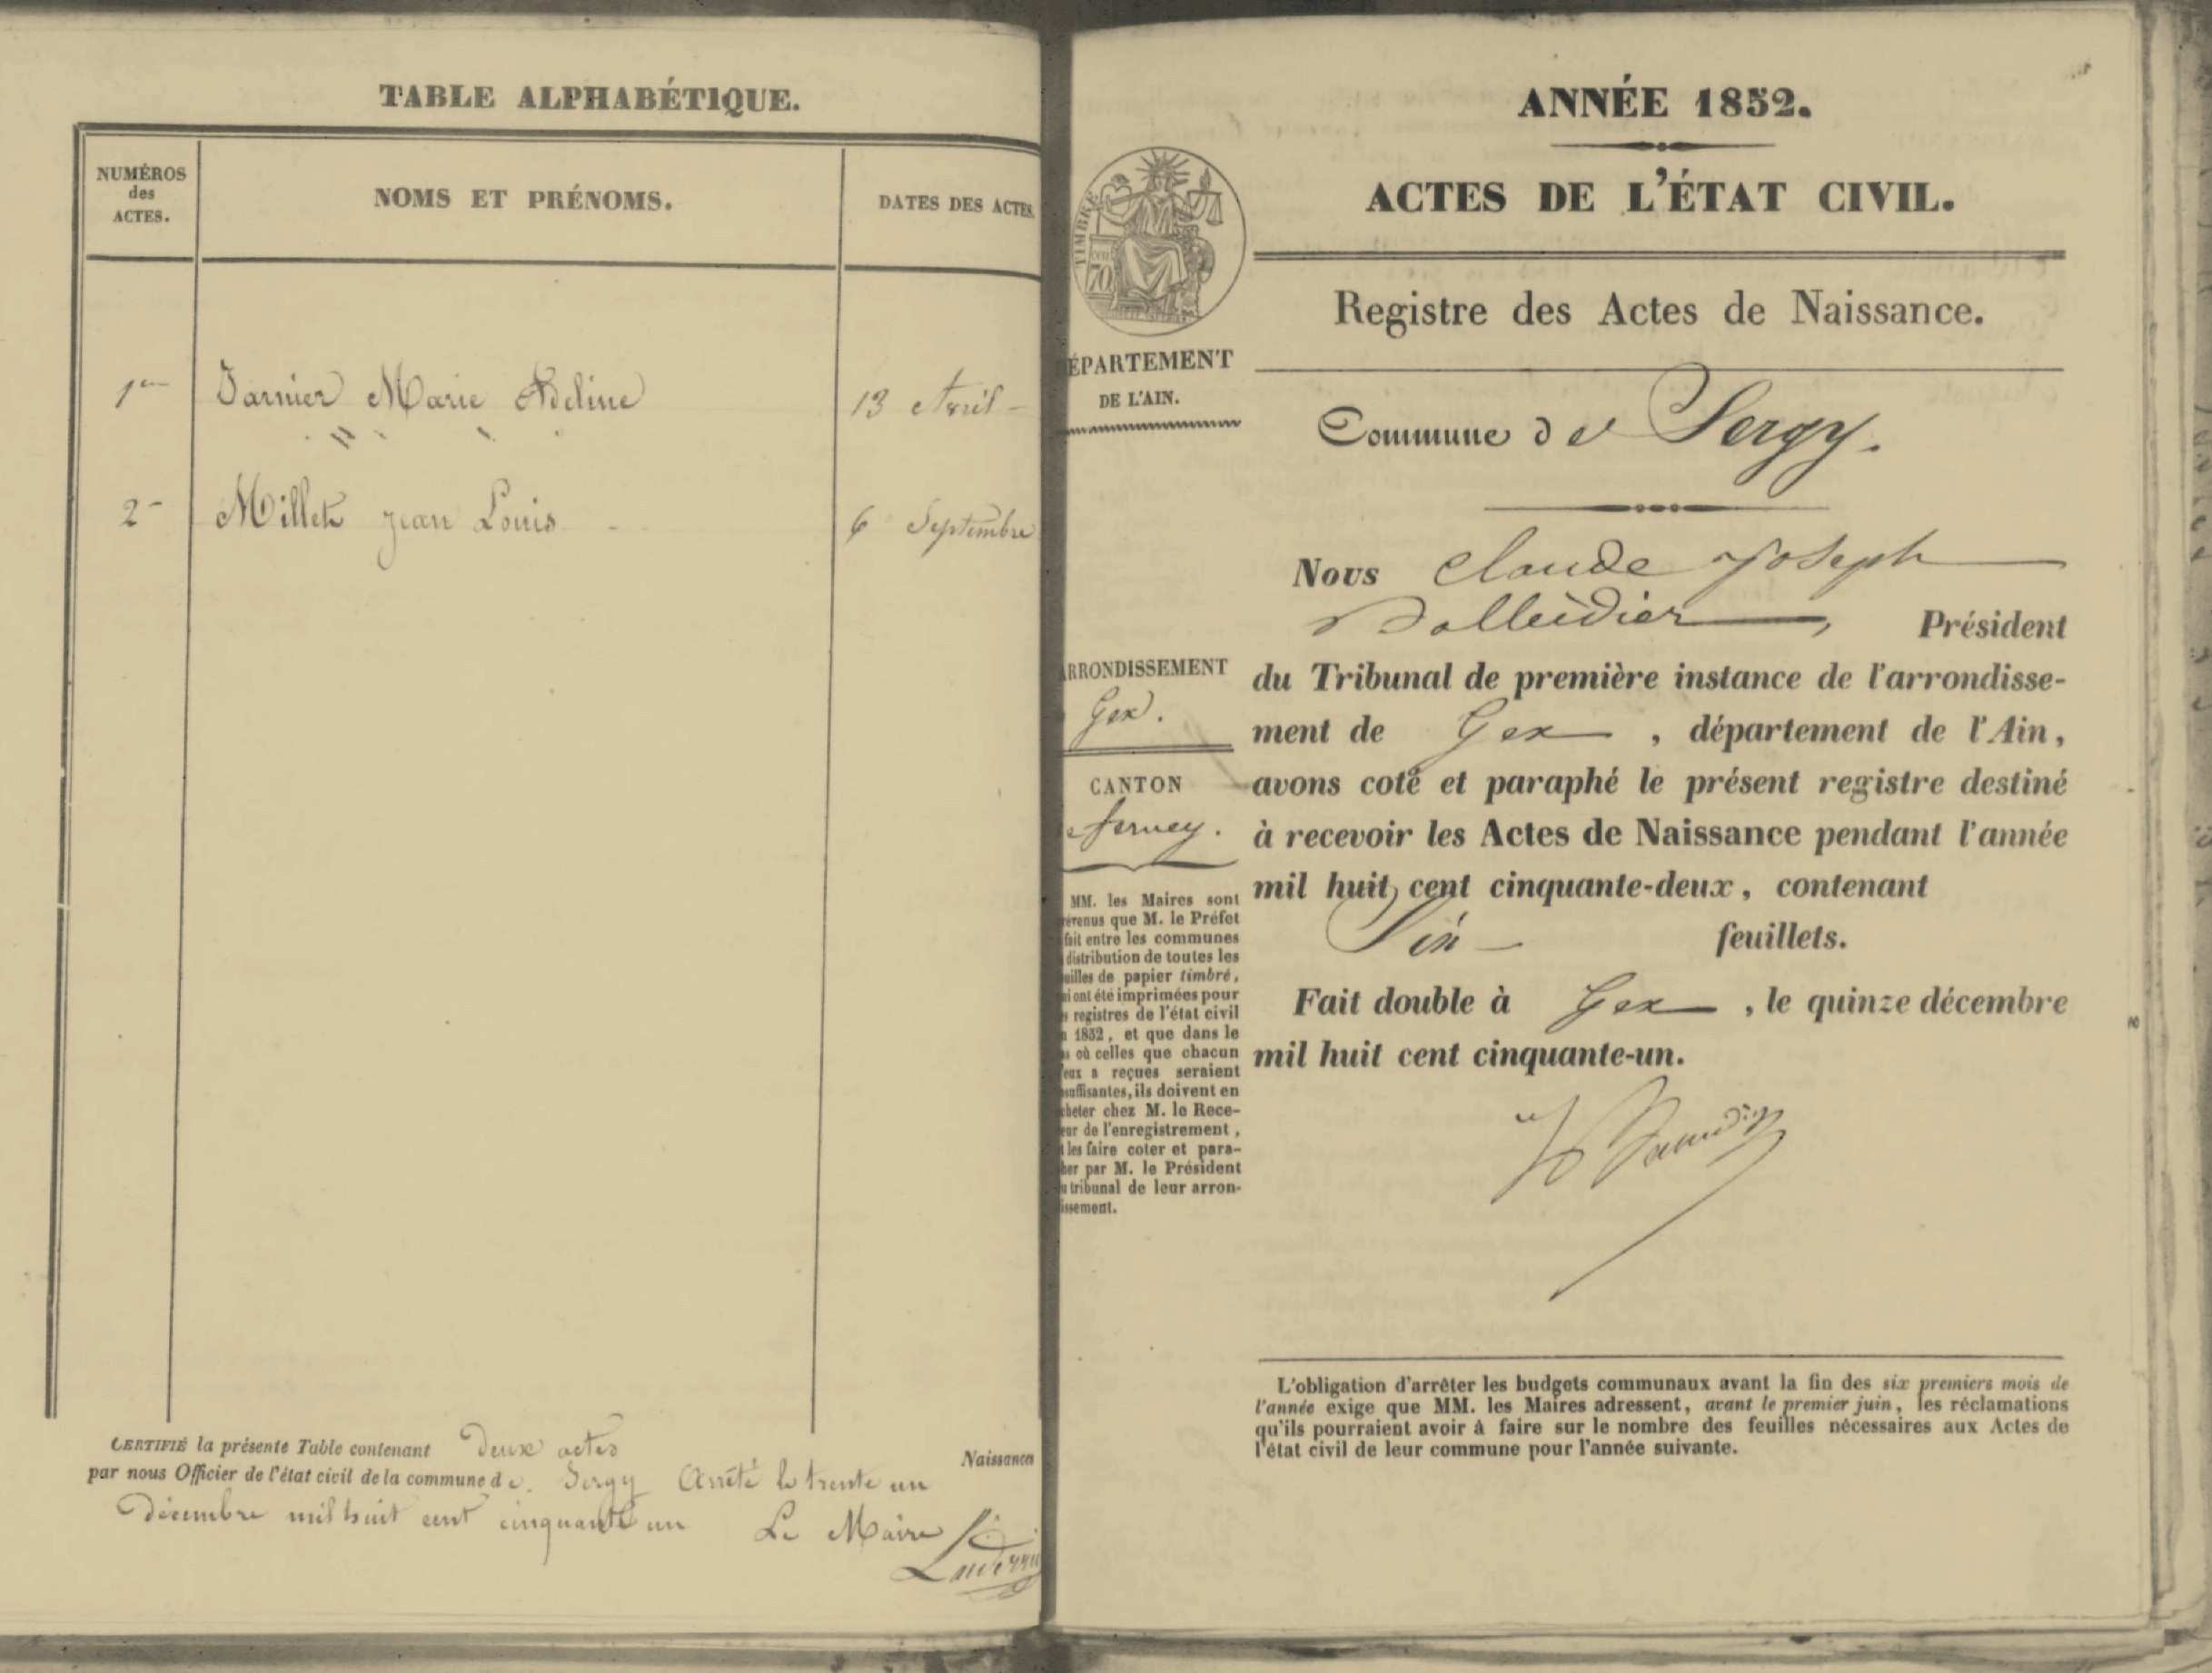 TABLE ALPHABÉTIQUE.
NUMÉROS
des
ACTES.
NOMS ET PRÉNOMS.
DATES DES ACTES.
1er Varnier Marie Adeline 13 Avril
2 Millet jean Louis 6 Septembre
CERTIFIÉ la présente Table contenant Deux actes Naissances
par nous Officier de l'état civil de la commune de Sergy Arrêté le trente un
décembre mil huit cent cinquante un Le Maire
ANNÉE 1852.
ACTES DE L'ÉTAT CIVIL.
TIMBRE
70
Registre des Actes de Naissance.
DÉPARTEMENT
DE L'AIN.
Commune de Sergy.
Nous Claude Joseph
Balleidier, Président
du Tribunal de première instance de l'arrondisse-
ment de Gex, département de l'Ain,
avons coté et paraphé le présent registre destiné
à recevoir les Actes de Naissance pendant l'année
mil huit cent cinquante-deux, contenant
Six feuillets.
Fait double à Gex, le quinze décembre
mil huit cent cinquante-un.
ARRONDISSEMENT
Gex.
CANTON
ferney.
MM. les Maires sont
prévenus que M. le Préfet
fait entre les communes
distribution de toutes les
feuilles de papier timbré,
qui ont été imprimées pour
registres de l'état civil
1852, et que dans le
cas où celles que chacun
d'eux a reçues seraient
insuffisantes, ils doivent en
acheter chez M. le Rece-
veur de l'enregistrement,
les faire coter et para-
pher par M. le Président
du tribunal de leur arron-
dissement.
L'obligation d'arrêter les budgets communaux avant la fin des six premiers mois de
l'année exige que MM. les Maires adressent, avant le premier juin, les réclamations
qu'ils pourraient avoir à faire sur le nombre des feuilles nécessaires aux Actes de
l'état civil de leur commune pour l'année suivante.